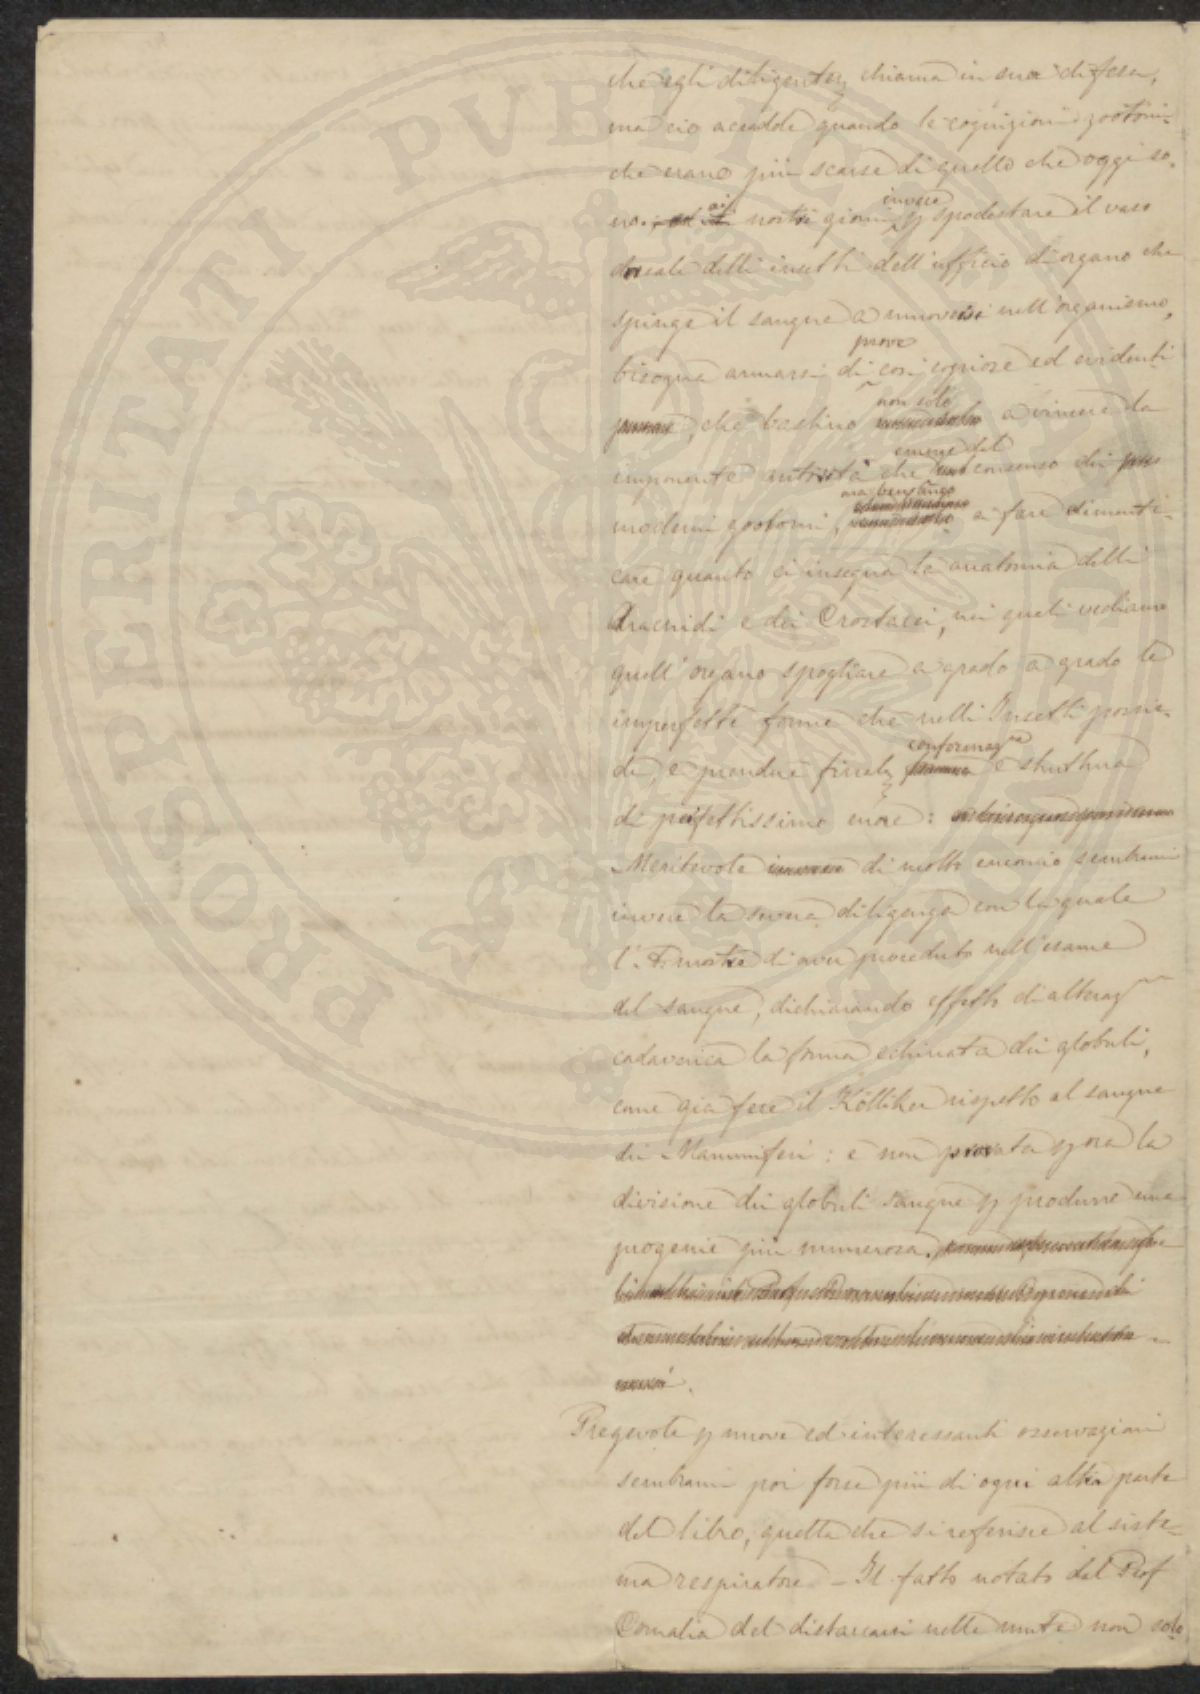 PROSPERITATI PUBLICAE AUGENDAE
che egli diligentemz chiama in sua difesa,
ma ciò accadde quando le cognizioni zootomi-
che erano più scarse di quello che oggi so-
no. ai nostri giorni invece p spodestare il vaso
dorsale delli insetti dell'ufficio di organo che
spinge il sangue a muoversi nell'organismo,
bisogna armarsi di prove così copiose ed evidenti
, che bastino non solo a vincere la
imponente autorità che emerge dal consenso dei
moderni zootomi, ma bensanco a fare dimenti-
care quanto ci insegna la anatomia delli
Aracnidi e dei Crostacei, nei quali vediamo
quell'organo spogliare a grado a grado le
imperfette forme che nelli Insetti possie-
de, e prendere finalmz conformazne e struttura
di perfettissimo cuore:
Meritevole di molto encomio sembrami
invece la severa diligenza con la quale
l'A. mostra di aver proceduto nell'esame
del sangue, dichiarando effetto di alterazne
cadaverica la forma echinata dei globuli,
come già fece il Kölliker rispetto al sangue
dei Mammiferi: e non provata p ora la
divisione dei globuli sangue p produrre una
progenie più numerosa.
Pregevole p nuove ed interessanti osservazioni
sembrami poi forse più di ogni altra parte
del libro, quella che si riferisce al siste-
ma respiratore – Il fatto notato dal Prof
Cornalia del distaccarsi nelle mute non solo